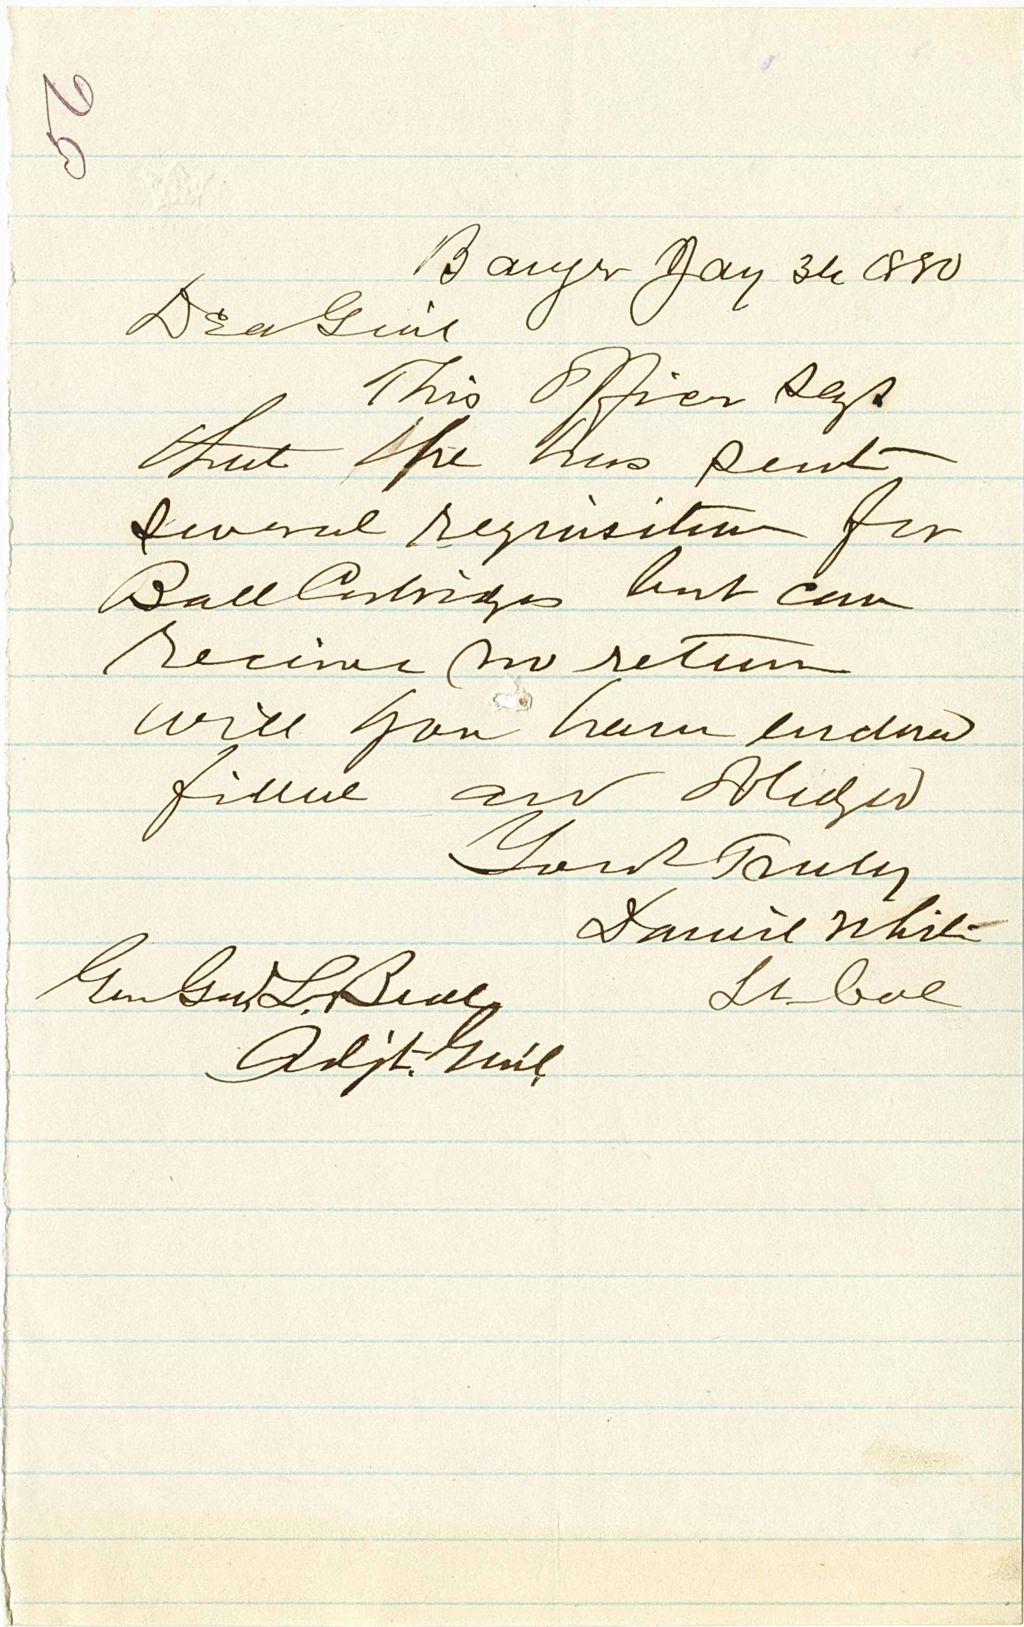 20
Bangor Jany 3d 1880
Dear Genl
This Officer says
that he has sent
several requisition for
Ball Cartridges but can
receive no return
will you have
filled and oblidge
Yours Truly
Daniel White
Lt. Col
Gen Geo. L. Beal
Adjt. Genl.